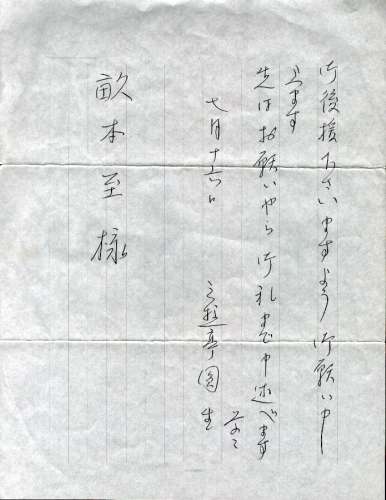 御後援下さいますよう御願い申し
上ます
先はお願いやら御礼まで申述べます
草々
七月十六日
三遊亭圓生
畝本至様